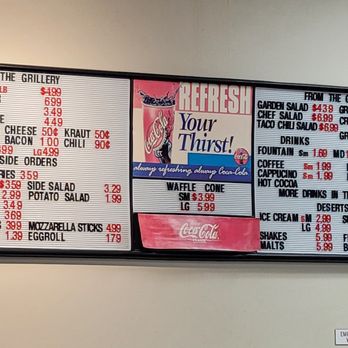 THE GRILLERY
LB $4.99
6.99
3.49
4.49
CHEESE 50¢ KRAUT 50¢
BACON 1.00 CHILI 90¢
.99 LG 4.99
SIDE ORDERS
FRIES 3.59
$3.59 SIDE SALAD 3.29
2.79 POTATO SALAD 1.99
3.49
3.69
4.99 MOZZARELLA STICKS 4.99
1.39 EGGROLL 1.79
REFRESH
Your
Thirst!
Coca-Cola
always refreshing. always Coca-Cola.
WAFFLE CONE
SM $3.99
LG 5.99
Coca-Cola
CLASSIC
FROM THE
GARDEN SALAD $4.39
CHEF SALAD $6.99
TACO CHILI SALAD $6.99
DRINKS
FOUNTAIN Sm 1.69 MD
COFFEE Sm 1.99
CAPPUCINO Sm 1.99
HOT COCOA
MORE DRINKS IN THE
DESERTS
ICE CREAM SM 2.99
LG 4.99
SHAKES 5.99
MALTS 5.99